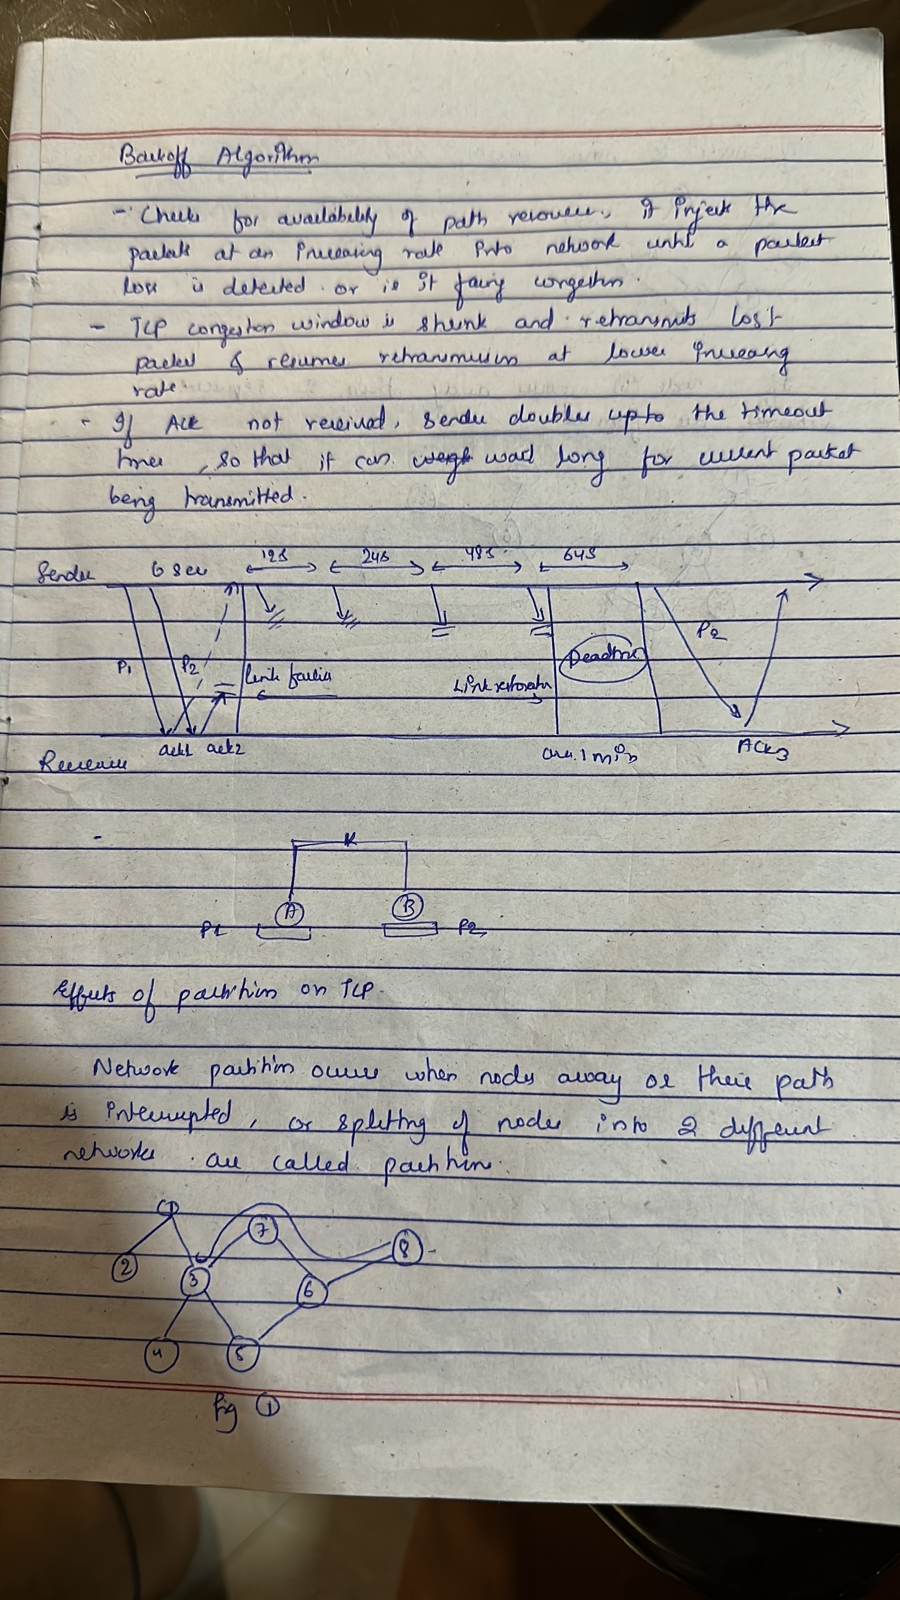 Backoff Algorithm
- Checks for availability of path resources, it injects the
packets at an increasing rate into network until a packet
loss is detected or is it facing congestion.
- TCP congestion window is shrunk and retransmits lost
packet & resumes retransmission at lower increasing
rate.
- If Ack not received, sender doubles upto the timeout
times, so that it can wait long for current packet
being transmitted.
12s 24s 48s 64s
Sender 6 sec
P1 P2 P2
link failure Deadtime
Link restoration
ack1 ack2 1 min ACK3
Receiver
A B
P1 P2
Effects of partition on TCP.
Network partition occurs when nodes away or their path
is interrupted, or splitting of nodes into 2 different
networks are called partition.
1 7 8
2 3 6
4 5
fig 1